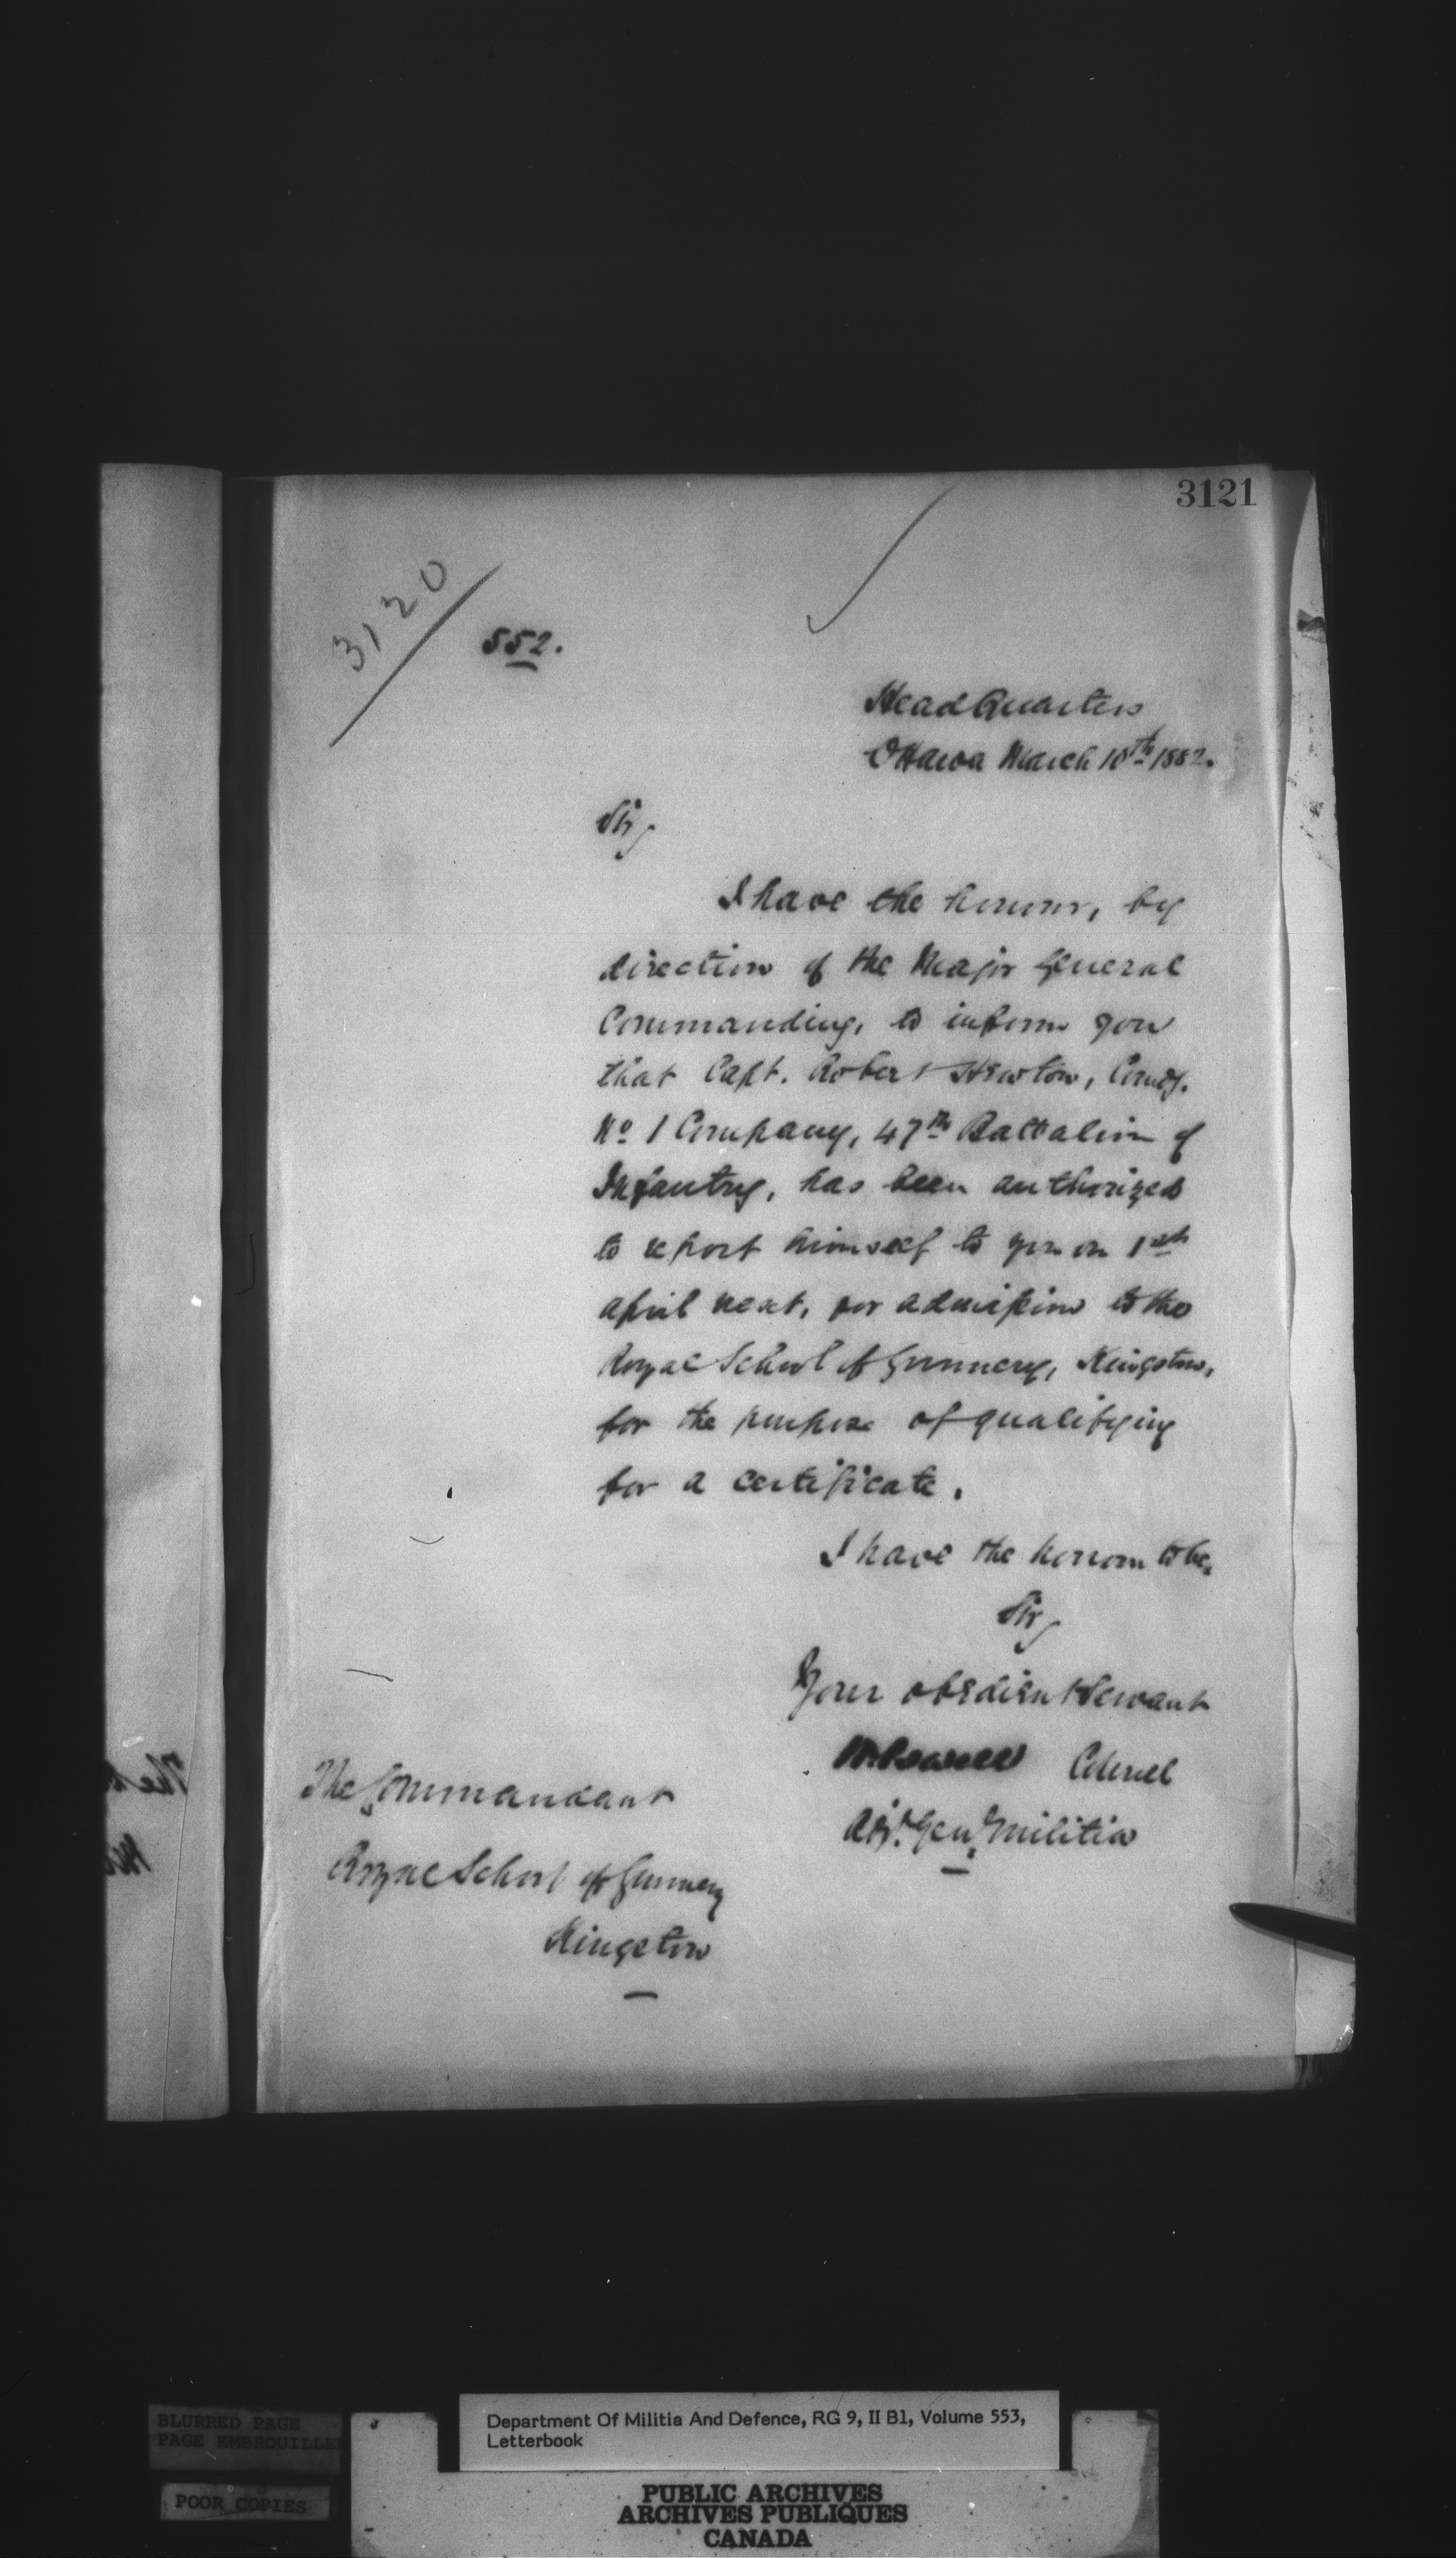 3121
3120
552.
Head Quarters
Ottawa March 10th 1882.
Sir,
I have the honour, by
direction of the Major General
Commanding, to inform you
that Capt. Robert Newton, Comdg.
No 1 Company, 47th Battalion of
Infantry, has been authorized
to report himself to you on 1st
April next, for admission to the
Royal School of Gunnery, Kingston,
for the purpose of qualifying
for a certificate.
I have the honour to be,
Sir,
Your obedient Servant
Colonel
Adj. Gen. Militia
The Commandant
Royal School of Gunnery
Kingston
BLURRED PAGE
PAGE EMBROUILLE
POOR COPIES
Department Of Militia And Defence, RG 9, II B1, Volume 553,
Letterbook
PUBLIC ARCHIVES
ARCHIVES PUBLIQUES
CANADA